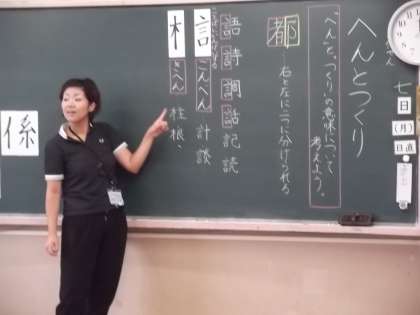 七日(月)
日直
へんとつくり
「へん」と「つくり」の意味について
考えよう。
都…右と左に二つに分けられる
語詩調話記読
言 ごんべん 計談
木 きへん 柱根、
係